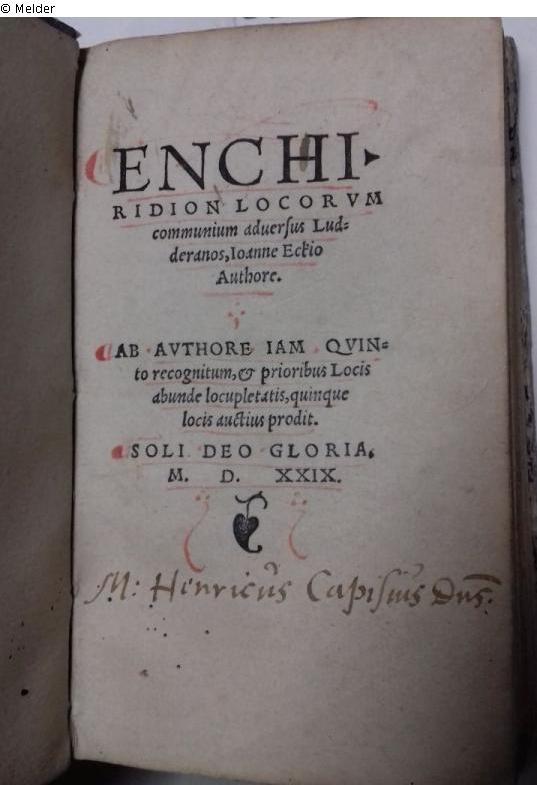 © Melder
ENCHI▸
RIDION LOCORVM
communium aduerſus Lud-
deranos, Ioanne Eckio
Authore.
AB AVTHORE IAM QVIN-
to recognitum, & prioribus Locis
abunde locupletatis, quinque
locis auctius prodit.
SOLI DEO GLORIA.
M. D. XXIX.
M: Henricus Capiſius Dns: